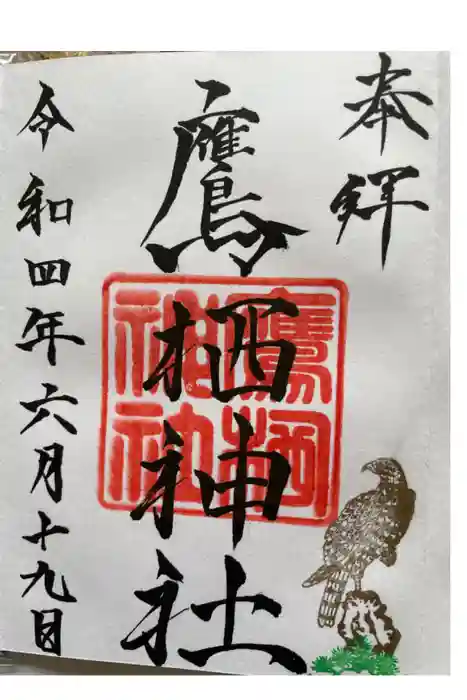 奉拝
鷹栖神社
鷹栖
神社
令和四年六月十九日